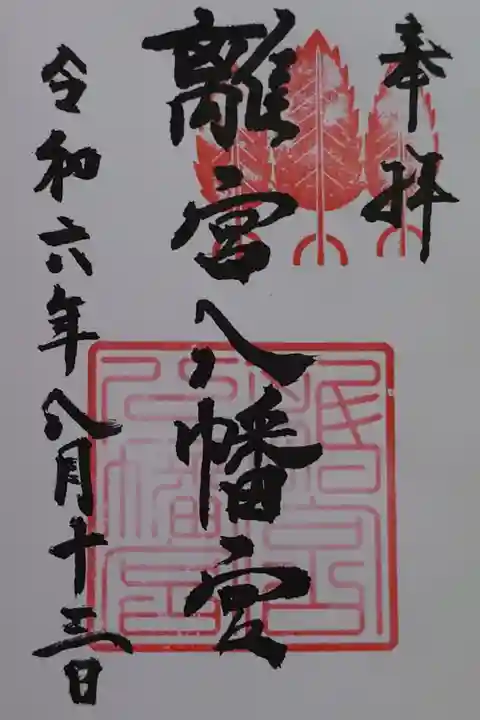 奉拝
離宮八幡宮
令和六年八月十三日